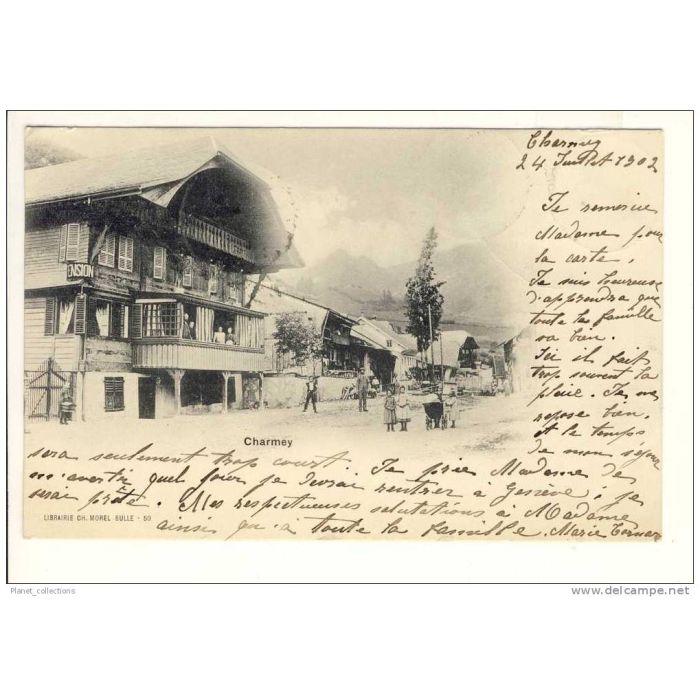 Charmey
24 Juillet 1902
Je remercie
Madame pour
la carte,
Je suis heureuse
d'apprendra que
toute la famille
va bien.
Ici il fait
trop souvent la
pluie. Je me
repose bien.
et le temps
de mon séjour
ENSION
Charmey
sera seulement trop court. Je prie Madame de
m'avertir quel jour je devrai rentrer à Genève; je
serai prête. Mes respectueuses salutations à Madame
LIBRAIRIE CH. MOREL BULLE - 50
ainsi qu'à toute la famille. Marie
Planet_collections
www.delcampe.net